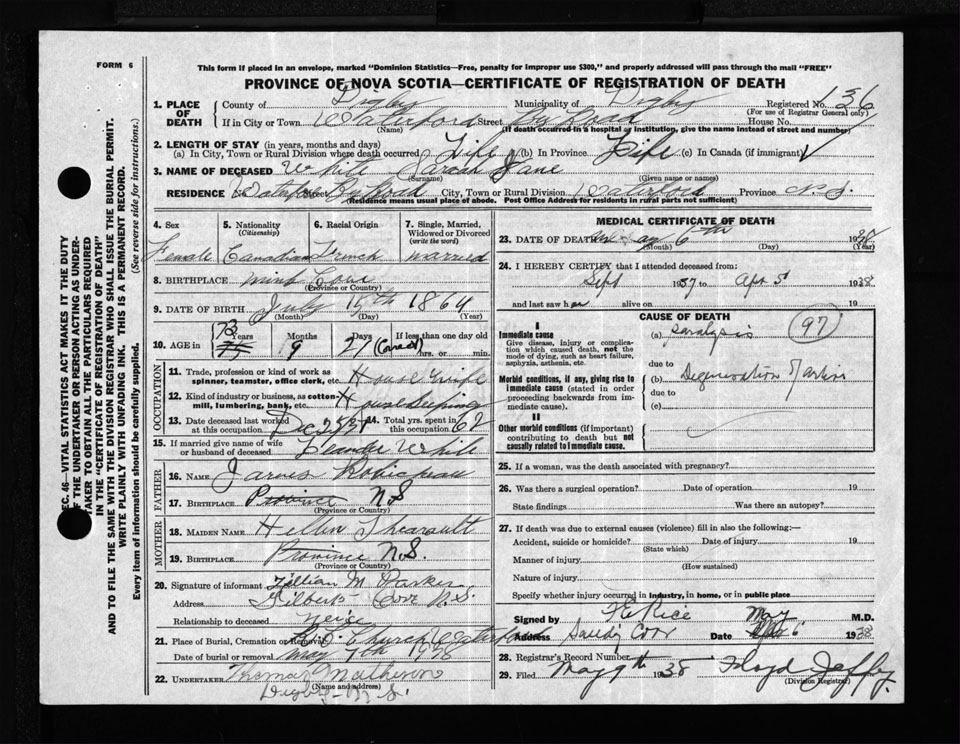 FORM 6
This form if placed in an envelope, marked "Dominion Statistics—Free, penalty for improper use $300," and properly addressed will pass through the mail "FREE"
PROVINCE OF NOVA SCOTIA—CERTIFICATE OF REGISTRATION OF DEATH
1. PLACE OF DEATH County of Digby Municipality of Digby Registered No. 136
(For use of Registrar General only)
If in City or Town Waterford Street House No.
(Name) (If death occurred in a hospital or institution, give the name instead of street and number)
2. LENGTH OF STAY (in years, months and days)
(a) In City, Town or Rural Division where death occurred Life (b) In Province Life (c) In Canada (if immigrant)
3. NAME OF DECEASED White Sarah Jane
(Surname) (Given name or names)
RESIDENCE City, Town or Rural Division Province N.S.
(Residence means usual place of abode. Post Office Address for residents in rural parts not sufficient)
4. Sex 5. Nationality 6. Racial Origin 7. Single, Married, Widowed or Divorced
(Citizenship) (write the word)
Female Canadian French married
8. BIRTHPLACE
(Province or Country)
9. DATE OF BIRTH July 15th 1864
(Month) (Day) (Year)
10. AGE in 73 Years 9 Months 21 Days If less than one day old
hrs. or min.
OCCUPATION
11. Trade, profession or kind of work as spinner, teamster, office clerk, etc. House wife
12. Kind of industry or business, as cotton-mill, lumbering, bank, etc. House Keeping
13. Date deceased last worked at this occupation Dec 25/37 14. Total yrs. spent in this occupation 62
15. If married give name of wife or husband of deceased Leander White
FATHER
16. NAME Jarvis Robicheau
17. BIRTHPLACE Province N.S.
(Province or Country)
MOTHER
18. MAIDEN NAME Hellen Thearault
19. BIRTHPLACE Province N.S.
(Province or Country)
20. Signature of informant Lillian M Parker
Address Gilberts Cove N.S.
Relationship to deceased neice
21. Place of Burial, Cremation or Removal Church
Date of burial or removal May 7th 1938
22. UNDERTAKER Thomas Matheson
(Name and address)
Digby N.S.
MEDICAL CERTIFICATE OF DEATH
23. DATE OF DEATH May 6th 1938
(Month) (Day) (Year)
24. I HEREBY CERTIFY that I attended deceased from:
Sept 1937 to Apr 5 1938
and last saw h alive on 19
CAUSE OF DEATH
I
Immediate cause (a) paralysis 97
Give disease, injury or complication which caused death, not the mode of dying, such as heart failure, asphyxia, asthenia, etc.
due to
Morbid conditions, if any, giving rise to immediate cause (stated in order proceeding backwards from immediate cause). (b) Degeneration
due to
(c)
II
Other morbid conditions (if important) contributing to death but not causally related to immediate cause.
25. If a woman, was the death associated with pregnancy?
26. Was there a surgical operation? Date of operation 19
State findings Was there an autopsy?
27. If death was due to external causes (violence) fill in also the following:—
Accident, suicide or homicide? Date of injury 19
(State which)
Manner of injury
(How sustained)
Nature of injury
Specify whether injury occurred in industry, in home, or in public place
Signed by Rice M.D.
Address Sandy Cove Date May 6 1938
28. Registrar's Record Number
29. Filed May 9th 1938 Floyd
(Division Registrar)
SEC. 46—VITAL STATISTICS ACT MAKES IT THE DUTY
OF THE UNDERTAKER OR PERSON ACTING AS UNDER-
TAKER TO OBTAIN ALL THE PARTICULARS REQUIRED
IN THE "CERTIFICATE OF REGISTRATION OF DEATH"
AND TO FILE THE SAME WITH THE DIVISION REGISTRAR WHO SHALL ISSUE THE BURIAL PERMIT.
WRITE PLAINLY WITH UNFADING INK. THIS IS A PERMANENT RECORD.
Every item of information should be carefully supplied. (See reverse side for instructions.)